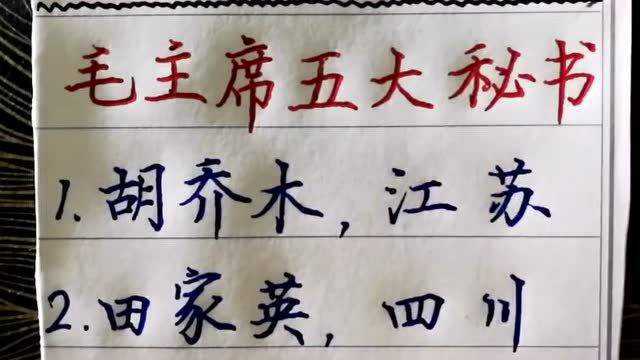 毛主席五大秘书
1.胡乔木,江苏
2.田家英,四川